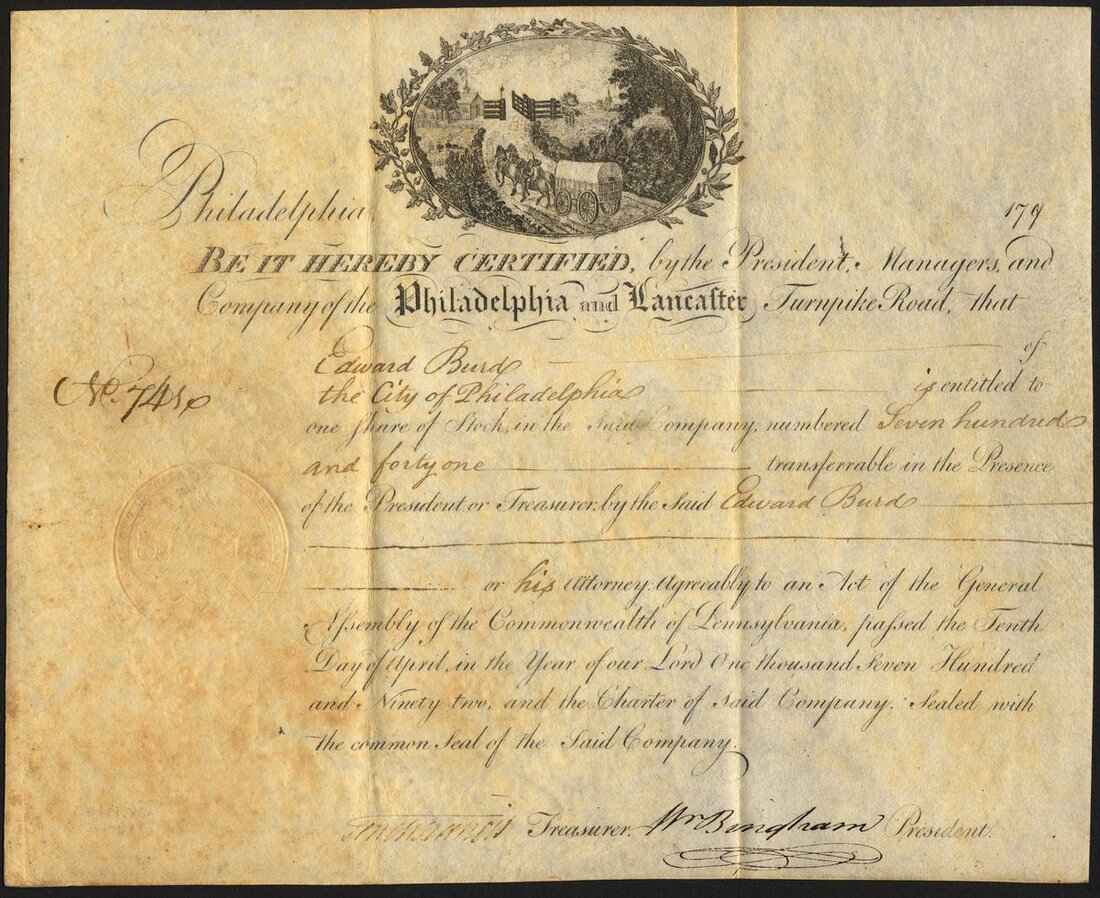 Philadelphia 179
BE IT HEREBY CERTIFIED, by the President, Managers, and
Company of the Philadelphia and Lancaster Turnpike Road, that
Edward Burd of
the City of Philadelphia is entitled to
No. 741
one Share of Stock, in the Said Company, numbered Seven hundred
and forty one transferrable in the Presence
of the President or Treasurer, by the Said Edward Burd
or his Attorney. Agreeably to an Act of the General
Assembly of the Commonwealth of Pennsylvania, passed the Tenth
Day of April, in the Year of our Lord One thousand Seven Hundred
and Ninety two, and the Charter of said Company. Sealed with
the common Seal of the Said Company.
Treasurer. Wm Bingham President.